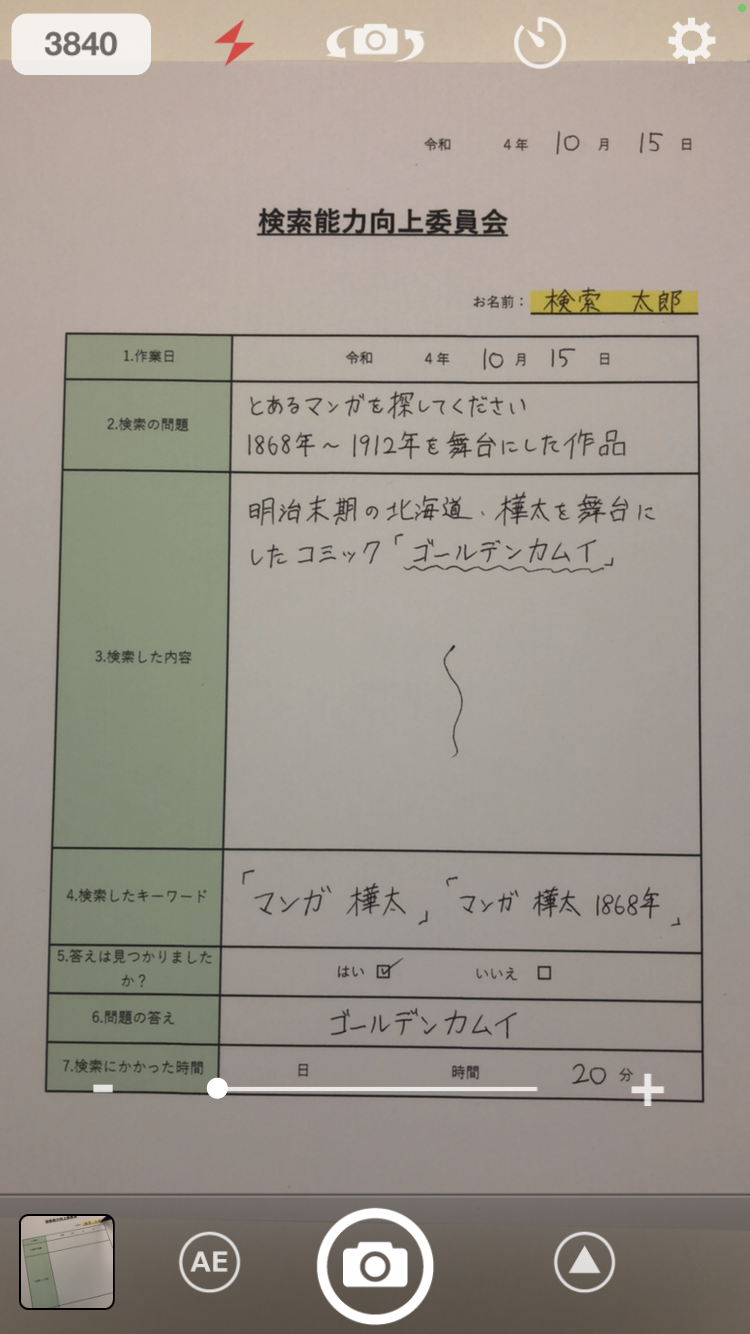 3840
令和 4年 10月 15日
検索能力向上委員会
お名前： 検索 太郎
1.作業日 令和 4年 10月 15日
2.検索の問題
とあるマンガを探してください
1868年～1912年を舞台にした作品
3.検索した内容
明治末期の北海道、樺太を舞台に
したコミック「ゴールデンカムイ」
4.検索したキーワード
「マンガ 樺太」「マンガ 樺太 1868年」
5.答えは見つかりました
か？
はい ☑ いいえ □
6.問題の答え ゴールデンカムイ
7.検索にかかった時間 日 時間 20分
AE